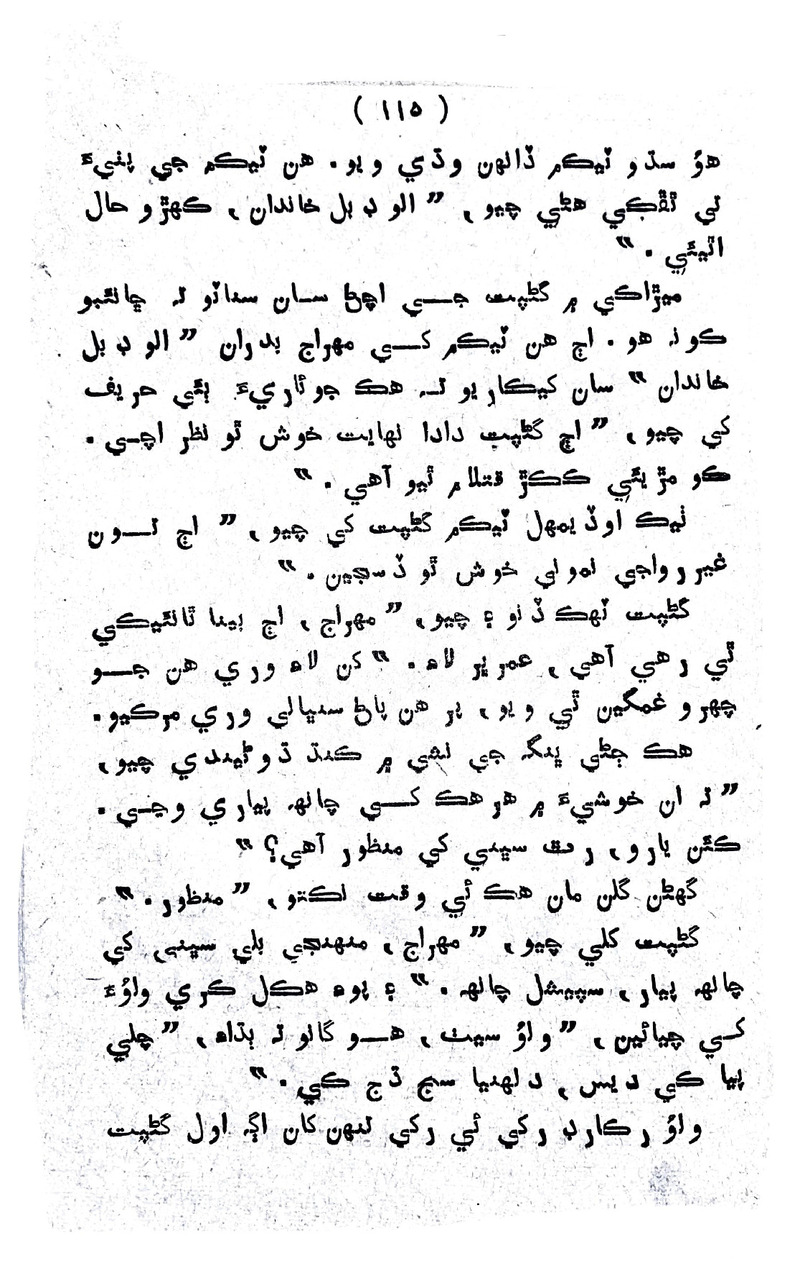 ( ۱۱۵ )
هوُ سڌو ٽيڪم ڏانهن وڌي ويو. هن ٽيڪم جي پٺيءَ
تي ٿڦڪي هڻي چيو، ”الو ڊبل خاندان، ڪهڙو حال
اٿيئي.“
ميڙاڪي ۾ گڻپت جي اچڻ سان سناٽو تہ ڇانئبو
ڪونہ هو. اڄ هن ٽيڪم کي مهراج بدران ”الو ڊبل
خاندان“ سان کيڪاريو تہ هڪ جوئاريءَ ٻئي حريف
کي چيو، ”اڄ گڻپت دادا نهايت خوش ٿو نظر اچي.
ڪو مڙيئي ڪڪڙ قتلام ٿيو آهي.“
ٺيڪ اوڏيمهل ٽيڪم گڻپت کي چيو، ”اڄ تون
غير رواجي نموني خوش ٿو ڏسجين.“
گڻپت ٽهڪ ڏنو ۽ چيو، ”مهراج، اڄ بينا ٿانئيڪي
ٿي رهي آهي، عمر ڀر لاءِ.“ کن لاءِ وري هن جو
چهرو غمگين ٿي ويو، پر هن پاڻ سنڀالي وري مرڪيو.
هڪ ڄڻي ڀنگ جي نشي ۾ ڪنڌ ڌوڻيندي چيو،
”تہ ان خوشيءَ ۾ هر هڪ کي چانهہ پياري وڃي.
ڪئن يارو، رٿ سڀني کي منظور آهي؟“
گهڻن گلن مان هڪ ئي وقت نڪتو، ”منظور.“
گڻپت کلي چيو، ”مهراج، منهنجي بلي سڀني کي
چانهہ پيار، سپيشل چانهہ.“ ۽ پوءِ هڪل ڪري واوُءَ
کي چيائين، ”واوُ سيٺ، هو گانو تہ ٻڌاءِ، ”چلي
پيا کي ديس، دلهنيا سج ڌج ڪي.“
واوُ رڪارڊ رکي ئي رکي تنهن کان اڳہ اول گڻپت